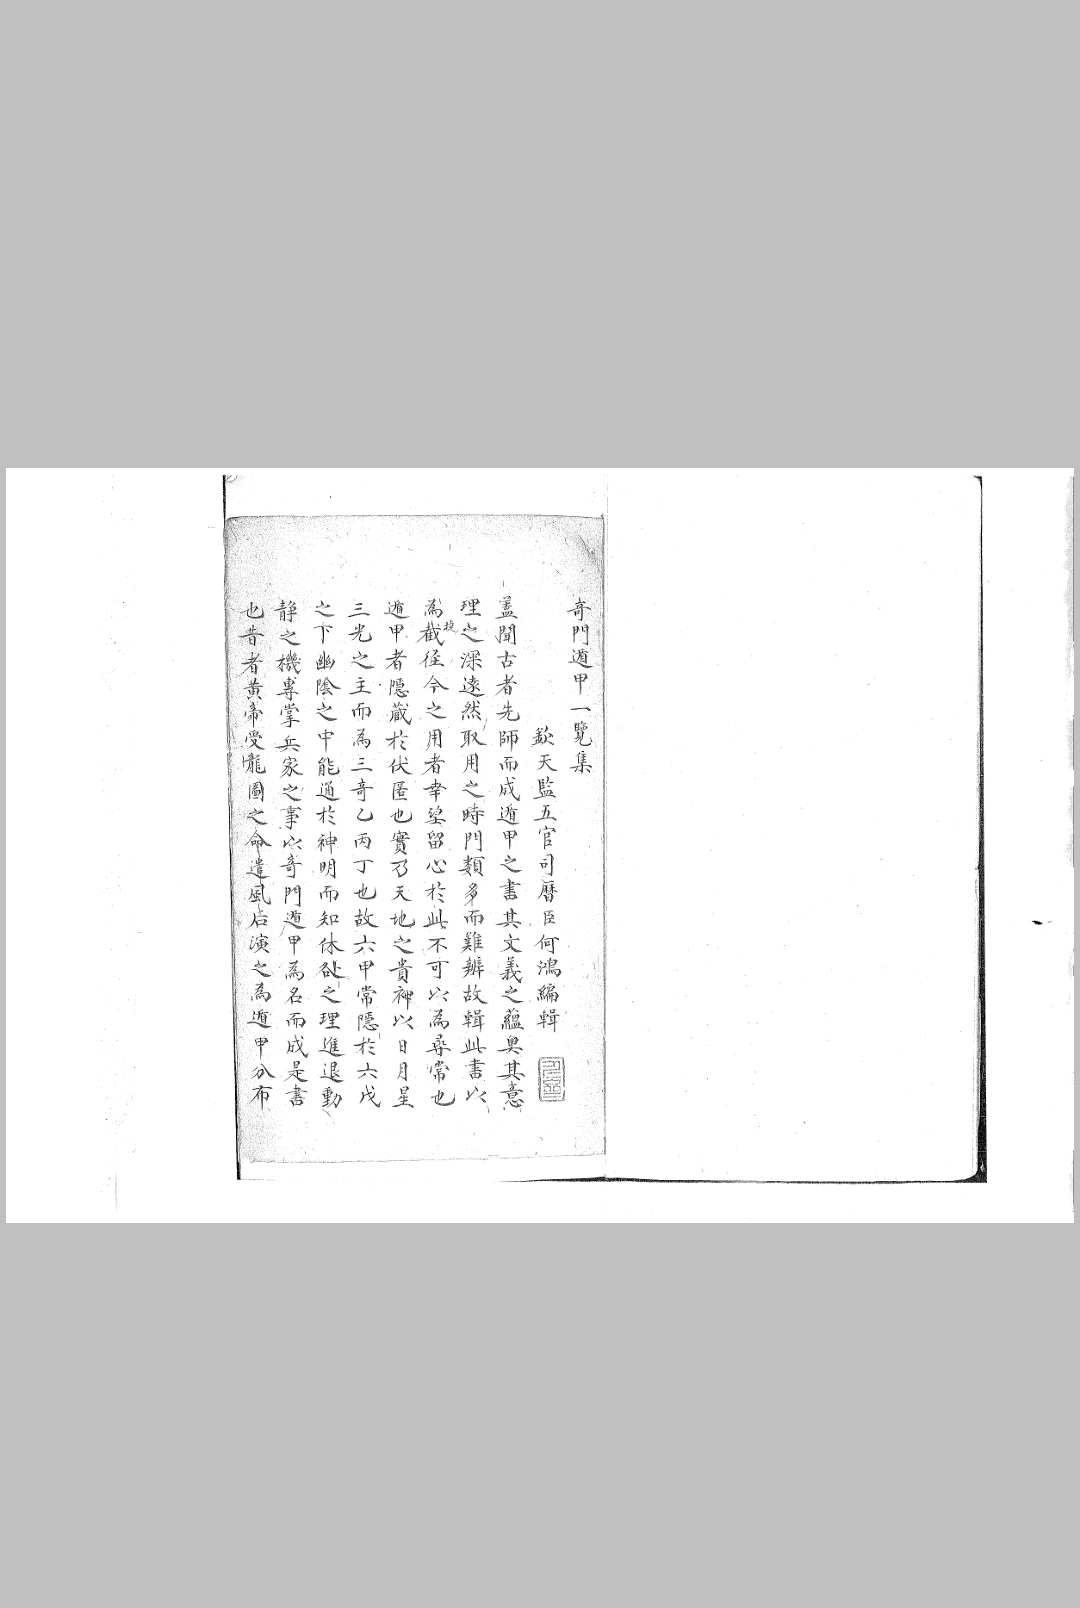 奇門遁甲一覽集
欽天監五官司曆臣何鴻編輯
盖聞古者先師而成遁甲之書其文義之蘊奥其意
理之深遠然取用之時門類多而難辨故輯此書以
為截捷徑今之用者幸望留心於此不可以為尋常也
遁甲者隱蔵於伏匿也實乃天地之貴神以日月星
三光之主而為三奇乙丙丁也故六甲常隱於六戊
之下幽隂之中能通於神明而知休咎之理進退動
静之機專掌兵家之事以奇門遁甲為名而成是書
也昔者黄帝受龍圖之命遣風后演之為遁甲分布